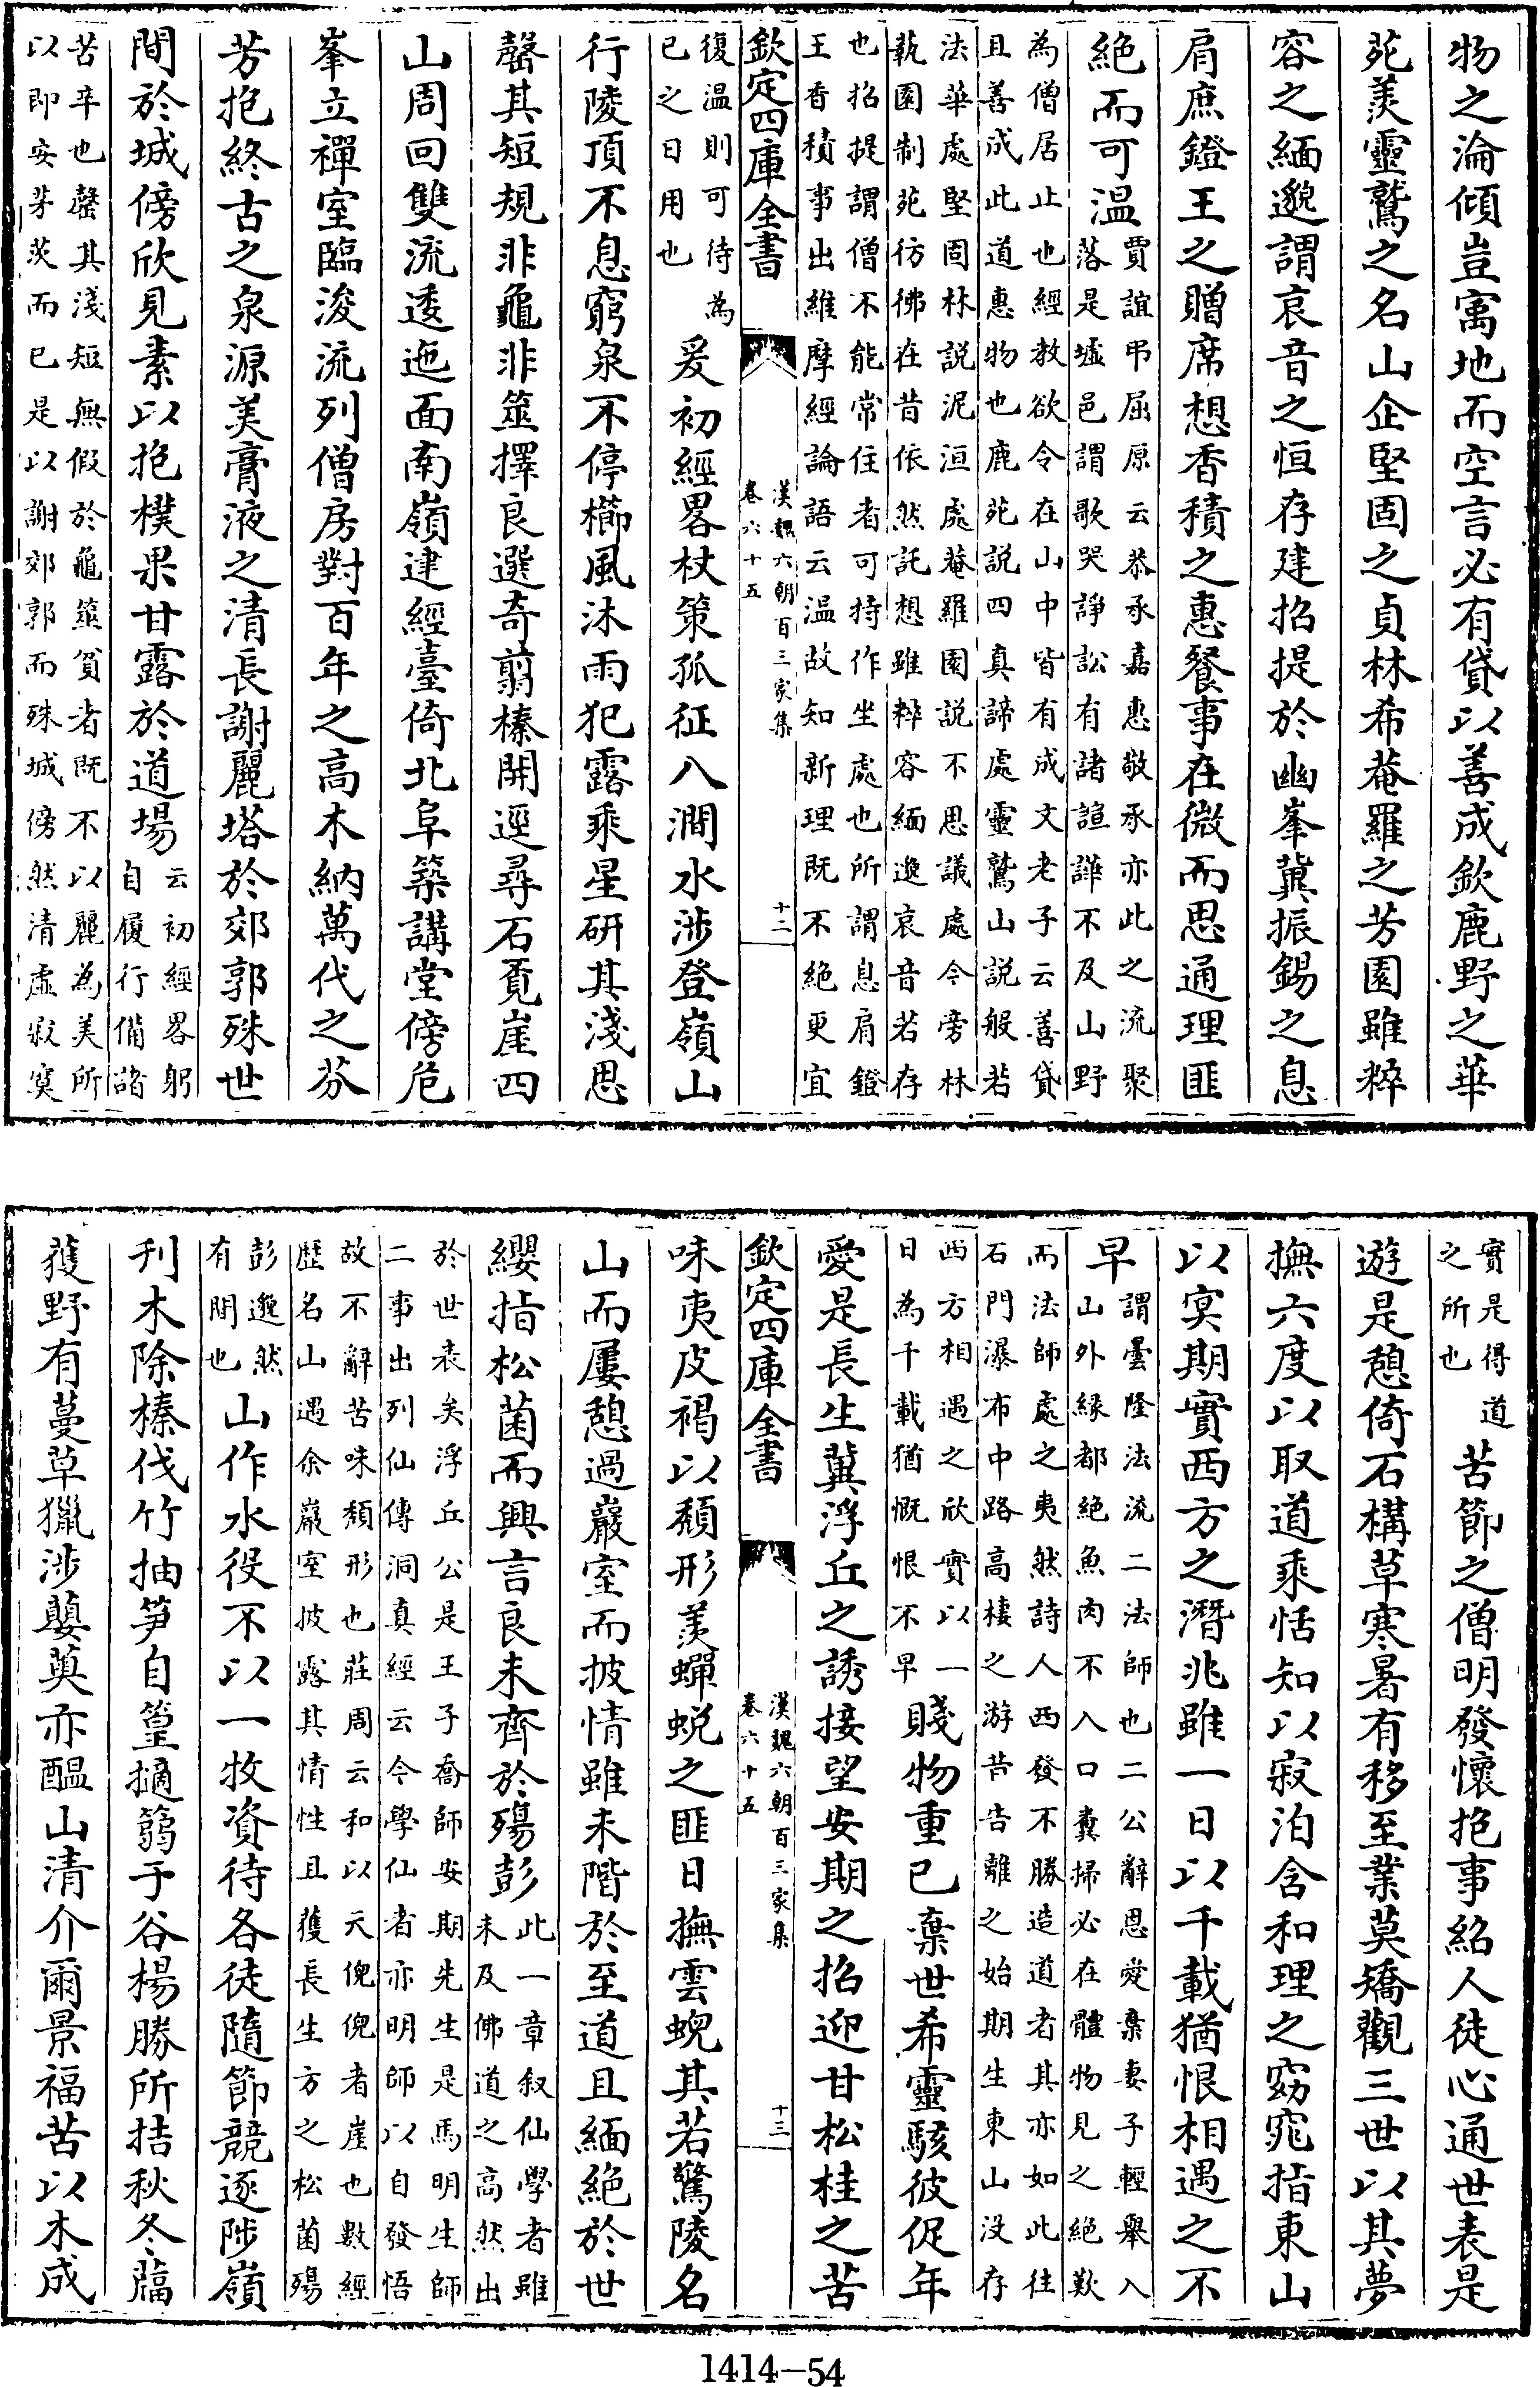 物之淪傾豈寓地而空言必有貸以善成欽鹿野之華
苑羨靈鷲之名山企堅固之貞林希菴羅之芳園雖粹
容之緬邈謂哀音之恒存建招提於幽峯冀振錫之息
肩庶鐙王之贈席想香積之惠餐事在微而思通理匪
絕而可温
賈誼弔屈原云恭承嘉惠敬承亦此之流聚
落是墟邑謂歌哭諍訟有諸諠譁不及山野
為僧居止也經教欲令在山中皆有成文老子云善貸
且善成此道惠物也鹿苑説四真諦處靈鷲山説般若
法華處堅固林説泥洹處菴羅園説不思議處今旁林
蓺園制苑彷彿在昔依然託想雖粹容緬邈哀音若存
也招提謂僧不能常住者可持作坐處也所謂息肩鐙
王香積事出維摩經論語云温故知新理既不絕更宜
欽定四庫全書
漢魏六朝百三家集
卷六十五
十二
復温則可待為
已之日用也
爰初經畧杖策孤征入澗水涉登嶺山
行陵頂不息窮泉不停櫛風沐雨犯露乘星研其淺思
罄其短規非龜非筮擇良選奇翦榛開逕尋石覓崖四
山周回雙流逶迤面南嶺建經臺倚北阜築講堂傍危
峯立禪室臨浚流列僧房對百年之高木納萬代之芬
芳抱終古之泉源美膏液之清長謝麗塔於郊郭殊世
間於城傍欣見素以抱樸果甘露於道場
云初經畧躬
自履行備諸
苦辛也罄其淺短無假於龜筮貧者既不以麗為美所
以即安茅茨而已是以謝郊郭而殊城傍然清虛寂寞
實是得道
之所也
苦節之僧明發懷抱事紹人徒心通世表是
遊是憩倚石構草寒暑有移至業莫矯觀三世以其夢
撫六度以取道乘恬知以寂泊含和理之窈窕指東山
以冥期實西方之潛兆雖一日以千載猶恨相遇之不
早
謂曇隆法流二法師也二公辭恩愛棄妻子輕舉入
山外緣都絕魚肉不入口糞掃必在體物見之絕歎
而法師處之夷然詩人西發不勝造道者其亦如此往
石門瀑布中路高棲之游昔告離之始期生東山沒存
西方相遇之欣實以一
日為千載猶慨恨不早
賤物重已棄世希靈駭彼促年
愛是長生冀浮丘之誘接望安期之招迎甘松桂之苦
欽定四庫全書
漢魏六朝百三家集
卷六十五
十三
味夷皮褐以頹形羨蟬蛻之匪日撫雲蜺其若驚陵名
山而屢憩過巖室而披情雖未階於至道且緬絕於世
纓指松菌而興言良未齊於殤彭
此一章叙仙學者雖
未及佛道之高然出
於世表矣浮丘公是王子喬師安期先生是馬明生師
二事出列仙傳洞真經云今學仙者亦明師以自發悟
故不辭苦味頹形也莊周云和以天倪倪者崖也數經
歴名山遇余巖室披露其情性且獲長生方之松菌殤
彭邈然
有間也
山作水役不以一牧資待各徒隨節競逐陟嶺
刋木除榛伐竹抽笋自篁擿篛于谷楊勝所拮秋冬䕨
獲野有蔓草獵涉蘡薁亦醖山清介爾景福苦以木成
1414-54